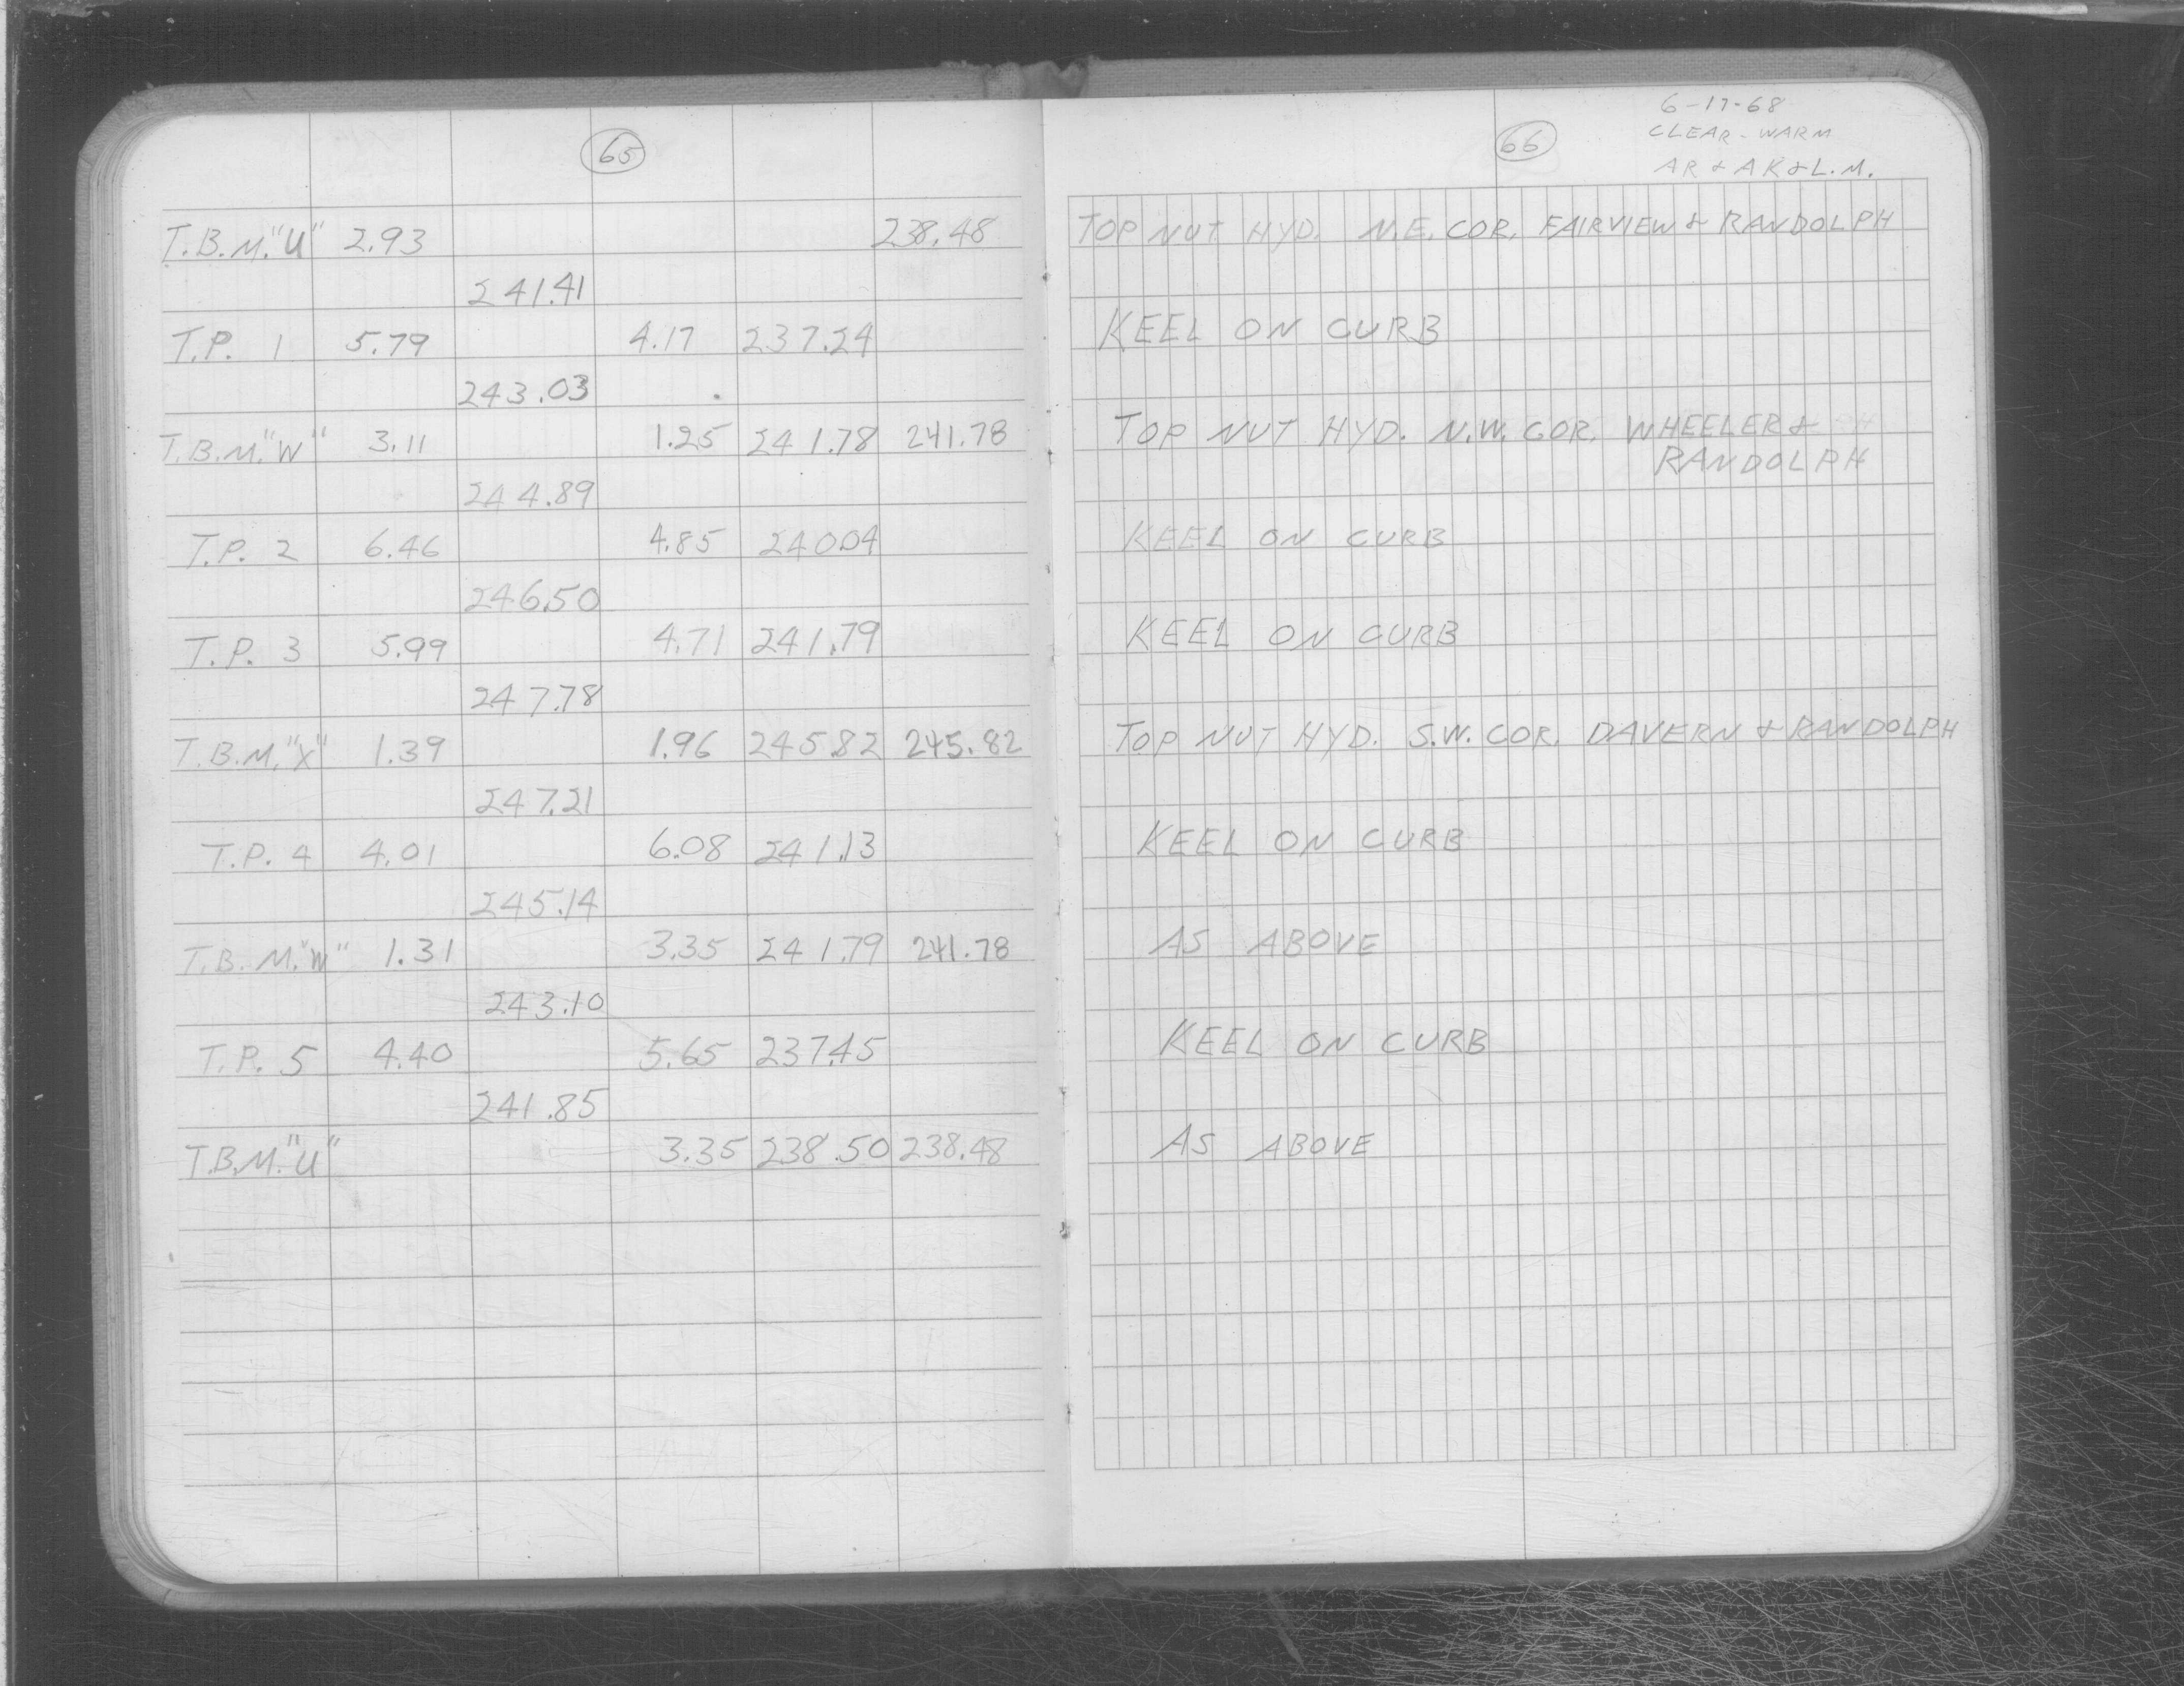 65
T.B.M. "U" 2.93 238.48
241.41
T.P. 1 5.79 4.17 237.24
243.03
T.B.M. "W" 3.11 1.25 241.78 241.78
244.89
T.P. 2 6.46 4.85 240.04
246.50
T.P. 3 5.99 4.71 241.79
247.78
T.B.M. "X" 1.39 1.96 245.82 245.82
247.21
T.P. 4 4.01 6.08 241.13
245.14
T.B.M. "W" 1.31 3.35 241.79 241.78
243.10
T.P. 5 4.40 5.65 237.45
241.85
T.B.M. "U" 3.35 238.50 238.48
66
6-17-68
CLEAR - WARM
AR & AK & L.M.
TOP NUT HYD. N.E. COR. FAIRVIEW & RANDOLPH
KEEL ON CURB
TOP NUT HYD. N.W. COR. WHEELER &
RANDOLPH
KEEL ON CURB
KEEL ON CURB
TOP NUT HYD. S.W. COR. DAVERN & RANDOLPH
KEEL ON CURB
AS ABOVE
KEEL ON CURB
AS ABOVE